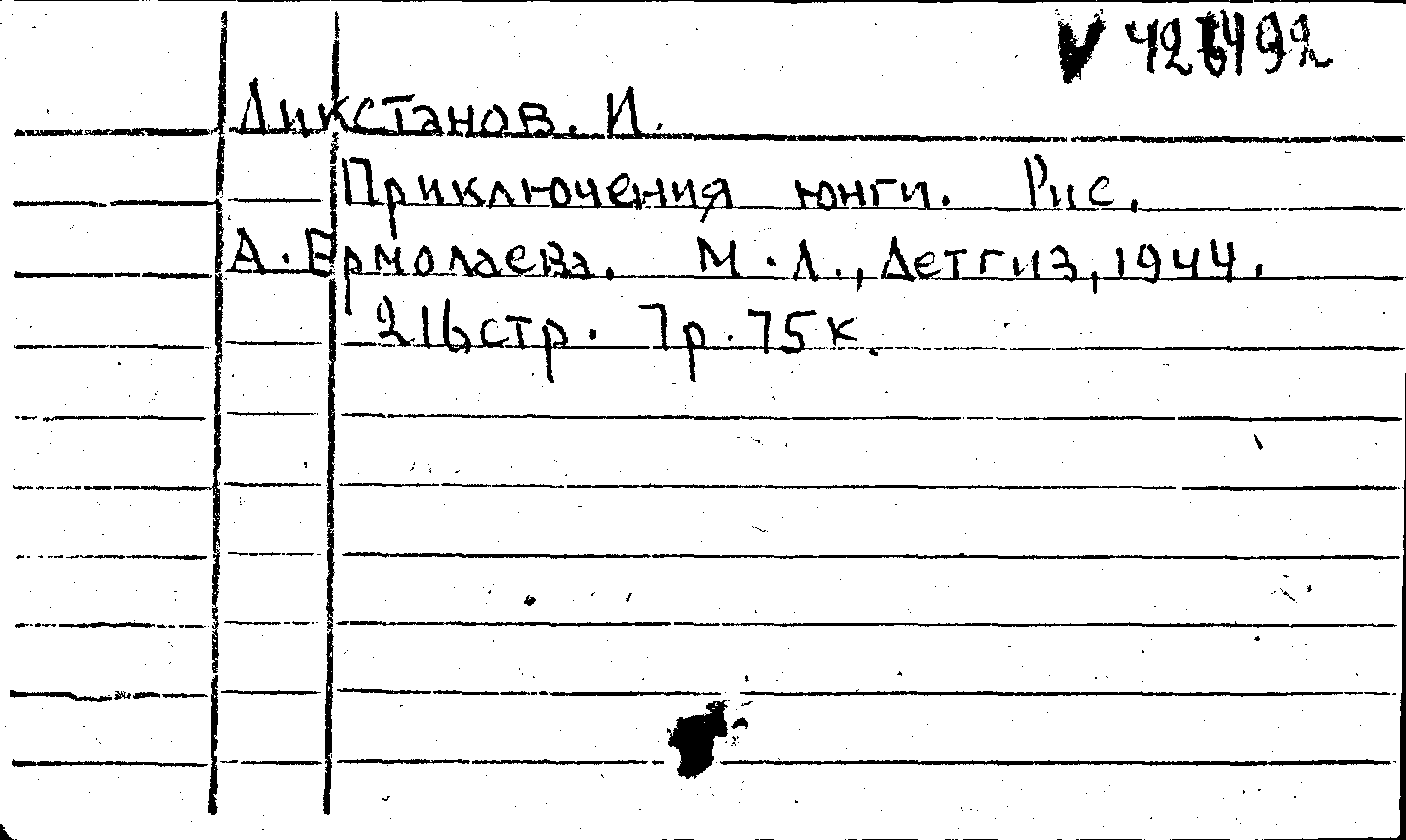 Ликстанов. И.
Приключения юнги. Рис.
А. Ермолаева. М.-Л., Детгиз, 1944.
216 стр. 7р. 75к.